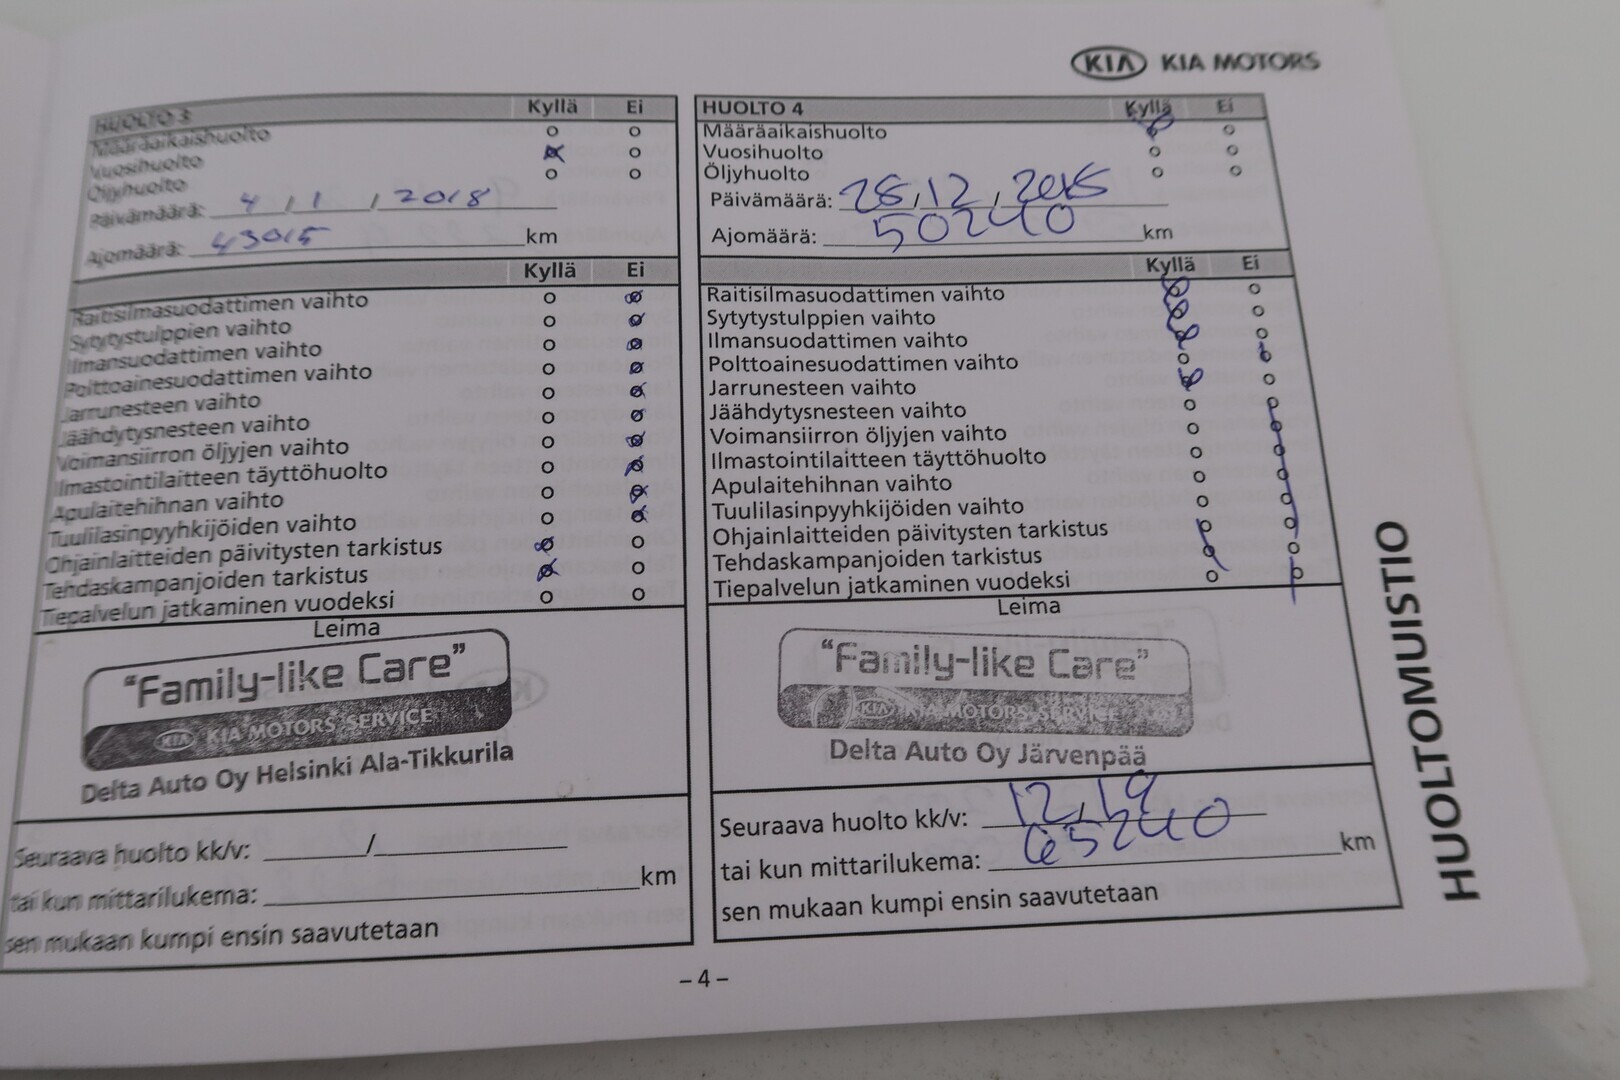 KIA KIA MOTORS
HUOLTO 3 Kyllä Ei
Määräaikaishuolto
Vuosihuolto
Öljyhuolto
Päivämäärä: 4 / 1 / 2018
Ajomäärä: 43015 km
Kyllä Ei
Raitisilmasuodattimen vaihto
Sytytystulppien vaihto
Ilmansuodattimen vaihto
Polttoainesuodattimen vaihto
Jarrunesteen vaihto
Jäähdytysnesteen vaihto
Voimansiirron öljyjen vaihto
Ilmastointilaitteen täyttöhuolto
Apulaitehihnan vaihto
Tuulilasinpyyhkijöiden vaihto
Ohjainlaitteiden päivitysten tarkistus
Tehdaskampanjoiden tarkistus
Tiepalvelun jatkaminen vuodeksi
Leima
"Family-like Care"
KIA KIA MOTORS SERVICE
Delta Auto Oy Helsinki Ala-Tikkurila
Seuraava huolto kk/v: /
tai kun mittarilukema: km
sen mukaan kumpi ensin saavutetaan
HUOLTO 4 Kyllä Ei
Määräaikaishuolto
Vuosihuolto
Öljyhuolto
Päivämäärä: 28 / 12 / 2018
Ajomäärä: 50240 km
Kyllä Ei
Raitisilmasuodattimen vaihto
Sytytystulppien vaihto
Ilmansuodattimen vaihto
Polttoainesuodattimen vaihto
Jarrunesteen vaihto
Jäähdytysnesteen vaihto
Voimansiirron öljyjen vaihto
Ilmastointilaitteen täyttöhuolto
Apulaitehihnan vaihto
Tuulilasinpyyhkijöiden vaihto
Ohjainlaitteiden päivitysten tarkistus
Tehdaskampanjoiden tarkistus
Tiepalvelun jatkaminen vuodeksi
Leima
"Family-like Care"
KIA KIA MOTORS SERVICE
Delta Auto Oy Järvenpää
Seuraava huolto kk/v: 12 / 19
tai kun mittarilukema: 65240 km
sen mukaan kumpi ensin saavutetaan
– 4 –
HUOLTOMUISTIO